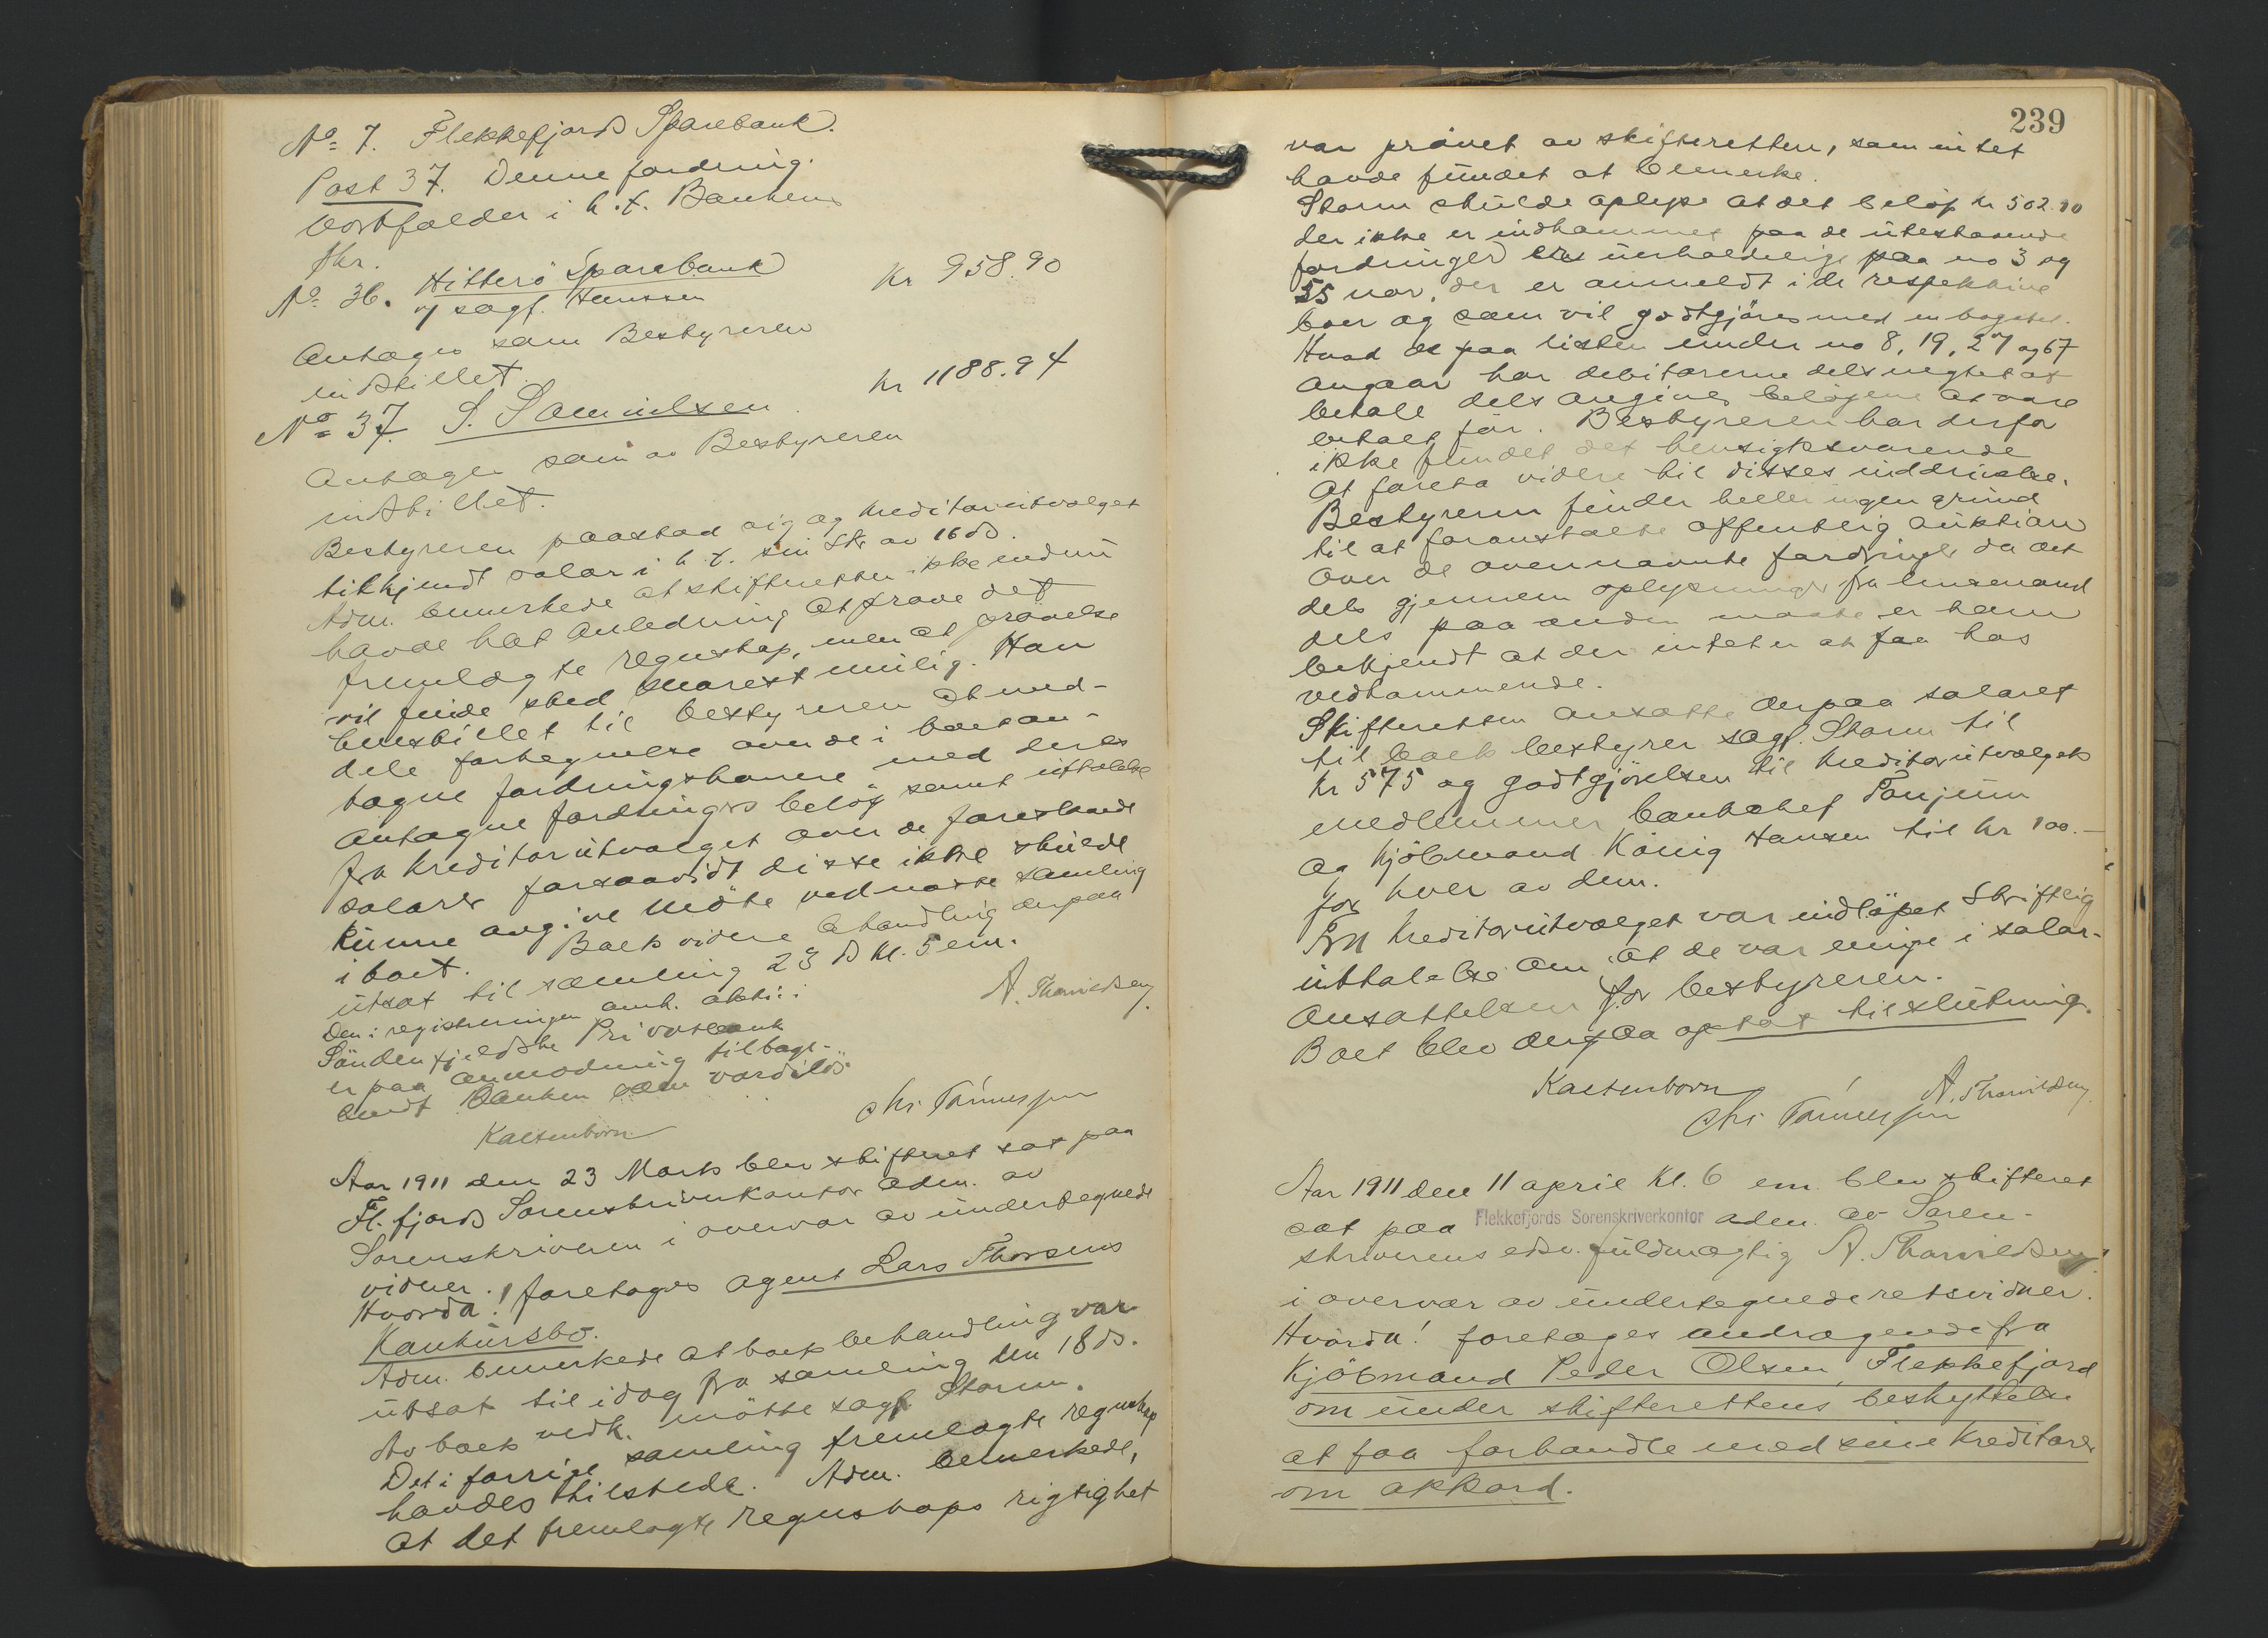 No 7. Flekkefjords Sparebank.
Post 37. Denne fordring
bortfalder i h.t. Bankens
skr.
No 36. Hitterö Sparebank
v/ sagf. Hanssen kr 958.90
Antages som Bestyreren
indstillet.
No 37. S. Samuelsen. kr 1188.94
Antages som av Bestyreren
indstillet.
Bestyreren paastod sig og kreditorutvalget
tilkjendt salar i h.t. sin skr av 16 ds.
Adm. bemerkede at skifteretten ikke endnu
havde hat anledning at prøve det
fremlagte regnskap, men at prøvelse
vil finde sted snarest mulig. Han
henstillet til bestyreren at med-
dele fortegnelse over de i boet an-
tagne fordringshavere med deres
antagne fordringers beløp samt uttalelse
fra kreditorutvalget over de forestaaende
salarer forsaavidt disse ikke skulde
kunne avgive møte ved næste samling
i boet. Boets videre behandling derpaa
utsat til samling 23 ds kl. 5 em.
Den i registreringen omh. aktie i
Söndenfjeldske Privatbank
er paa anmodning tilbage-
sendt banken som værdilös.
A. Thorvildsen
Kaltenborn Chr. Tönnessen
Aar 1911 den 23 Marts blev skifteret sat paa
Fl.fjords Sorenskriverkontor adm. av
Sorenskriveren i overvær av undertegnede
vidner.
Hvorda! foretages agent Lars Thorsens
Konkursbo.
Adm. bemerkede at boets behandling var
utsat til idag fra samling den 18 ds.
Av boets vedk. mötte sagf. Storm.
Det i forrige samling fremlagte regnskap
havdes tilstede. Adm. bemerkede,
at det fremlagte regnskaps rigtighet
239
var prövet av skifteretten, som intet
havde fundet at bemerke.
Storm skulde oplyse at det beløp kr 502.90
der ikke er indkommet paa de utestaaende
fordringer er uerholdelige paa no 3 og
55 nær, der er anmeldt i de respektive
boer og som vil godtgjöres med en bagatel.
Hvad de paa listen under no 8, 19, 27 og 67
angaar har debitorerne dels negtet at
betale dels angives beløpene at være
betalt før. Bestyreren har derfor
ikke fundet det hensigtssvarende
at foreta videre til disses inddrivelse.
Bestyreren finder heller ingen grund
til at foranstalte offentlig auktion
over de ovennævnte fordringer da det
dels gjennem oplysninger fra lensmand
dels paa anden maate er ham
bekjendt at der intet er at faa hos
vedkommende.
Skifteretten ansatte derpaa salaret
til boets bestyrer sagf. Storm til
kr 575 og godtgjörelsen til kreditorutvalgets
medlemmer bankchef Tonjum
og kjöbmand König Hansen til kr 100.-
for hver av dem.
Fra kreditorutvalget var indløpet skriftlig
uttalelse om, at de var enige i salar-
ansættelsen for bestyreren.
Boet blev derpaa optat til slutning.
Kaltenborn A. Thorvildsen
Chr Tönnessen
Aar 1911 den 11 april kl. 6 em blev skifteret
sat paa Flekkefjords Sorenskriverkontor adm. av Soren-
skriverens edsv. fuldmægtig A. Thorvildsen
i overvær av undertegnede retsvidner.
Hvorda! foretages andragende fra
Kjöbmand Peder Olsen, Flekkefjord
om under skifterettens beskyttelse
at faa forhandle med sine kreditorer
om akkord.